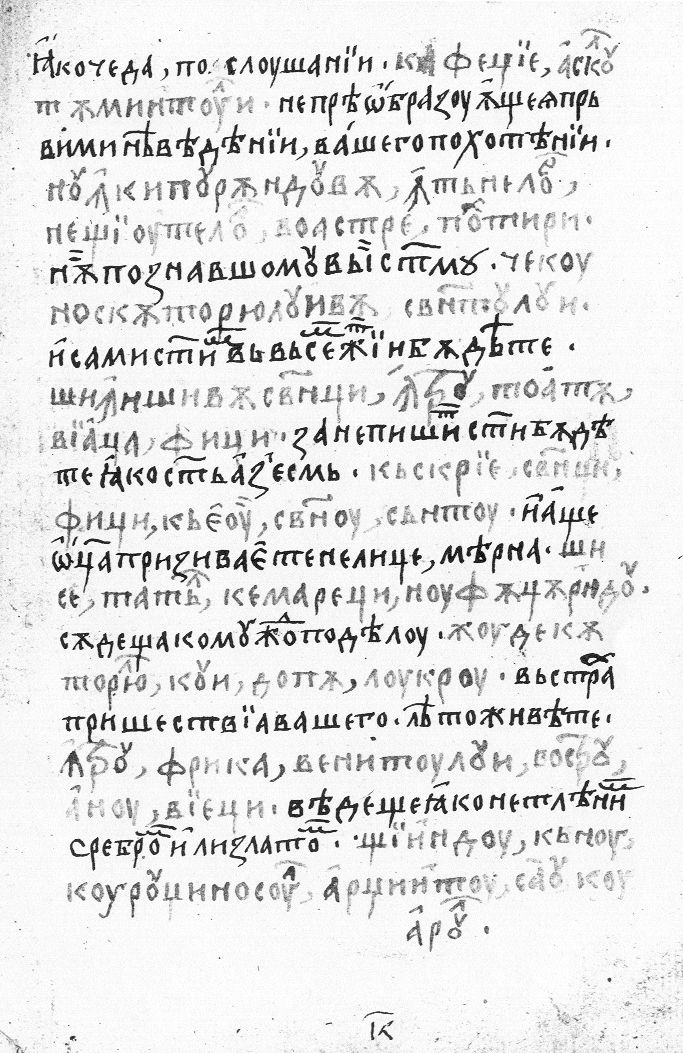 ꙗкочеда, по слоушанїи · ка фецїе, аскꙋл
тѫминтоуꙋи · непрѣѡбразоуѫщеѧпрь
вимиⷩ҇вѣдѣнїи, вашегопохотѣнїи ·
нꙋꙟкипꙋрѫндꙋвѫ, ꙟтьнелѡⷭ҇,
нещїоутелѡⷭ҇, воастре, поⷯтири ·
нѫпознавшомꙋвыїстⷨмꙋ · чекоу
носкѫторюлꙋивѫ, свⷩ҇тꙋлꙋи ·
исамистⷨиⷨвьвьсеⷨжⷮїибѫдѣте ·
шиꙟшивѫсвⷩ҇ци, ꙟтрꙋ, тоатѫ,
вїаца, фици · занепишиⷮстⷨибѫдѣ
теꙗкостⷨьазⸯесмь · кьскрїе, свⷩ҇ци,
фици, кьеоу, свⷩ҇оу, сьнтоу · иаще
ѡц҃апризиваетенелице, мѣрна · ши
се, татьⷧ, кемареци, ноуфѫцѫриⷩдꙋ ·
сѫдещакомꙋжⷣоподѣлоу · жоудекѫ
торїю, кꙋи, допѫ, лоукроу · вьстраⷯ
пришествїавашего · лѣⷮоживѣте ·
ꙟтрꙋ, фрика, венитоулꙋи, вострꙋ,
аноу, вїеци · вѣдещеꙗконетлѣниⷨ
сребрѡⷨ илизлатоⷨ · щїиндоу, кьноу,
коурꙋциносоуⷧ, арцинтоу, саꙋ коу
арꙋⷧ ·
к҃